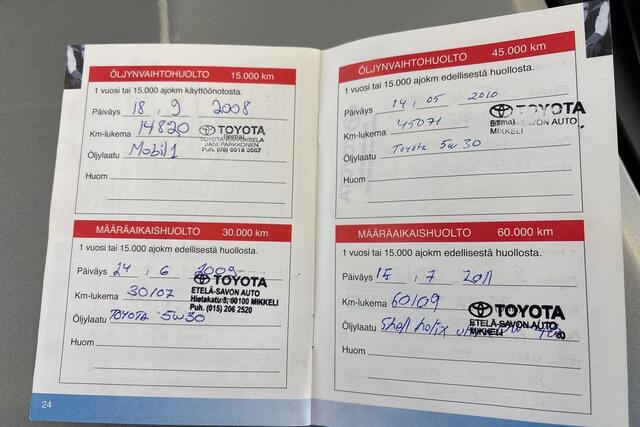 ÖLJYNVAIHTOHUOLTO 15.000 km
1 vuosi tai 15.000 ajokm käyttöönotosta.
Päiväys 18 . 9 2008
Km-lukema 14820
TOYOTA
JANI PARKKONEN
Öljylaatu Mobil 1
Huom
MÄÄRÄAIKAISHUOLTO 30.000 km
1 vuosi tai 15.000 ajokm edellisestä huollosta.
Päiväys 24 . 6 2009
Km-lukema 30107
TOYOTA
ETELÄ-SAVON AUTO
Hietakatu 8, 50100 MIKKELI
Puh. (015) 206 2520
Öljylaatu TOYOTA 5W30
Huom
24
ÖLJYNVAIHTOHUOLTO 45.000 km
1 vuosi tai 15.000 ajokm edellisestä huollosta.
Päiväys 14 . 05 2010
Km-lukema 45071
TOYOTA
ETELÄ-SAVON AUTO
MIKKELI
Öljylaatu Toyota 5w30
Huom
MÄÄRÄAIKAISHUOLTO 60.000 km
1 vuosi tai 15.000 ajokm edellisestä huollosta.
Päiväys 15 . 7 2011
Km-lukema 60109
TOYOTA
ETELÄ-SAVON AUTO
MIKKELI
Öljylaatu Shell helix
Huom